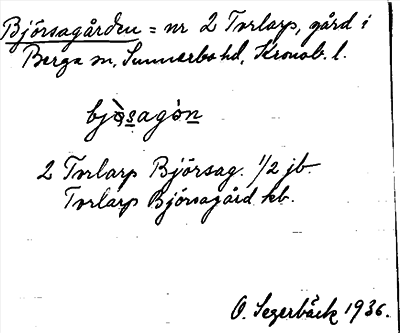 Björsagården = nr 2 Torlarp, gård i
Berga sn, Sunnerbo hd, Kronob. l.
bjò̱s̱agòṉ
2 Torlarp Björsag. 1/2 jb.
Torlarp Björsagård kb.
O. Segerbäck 1936.